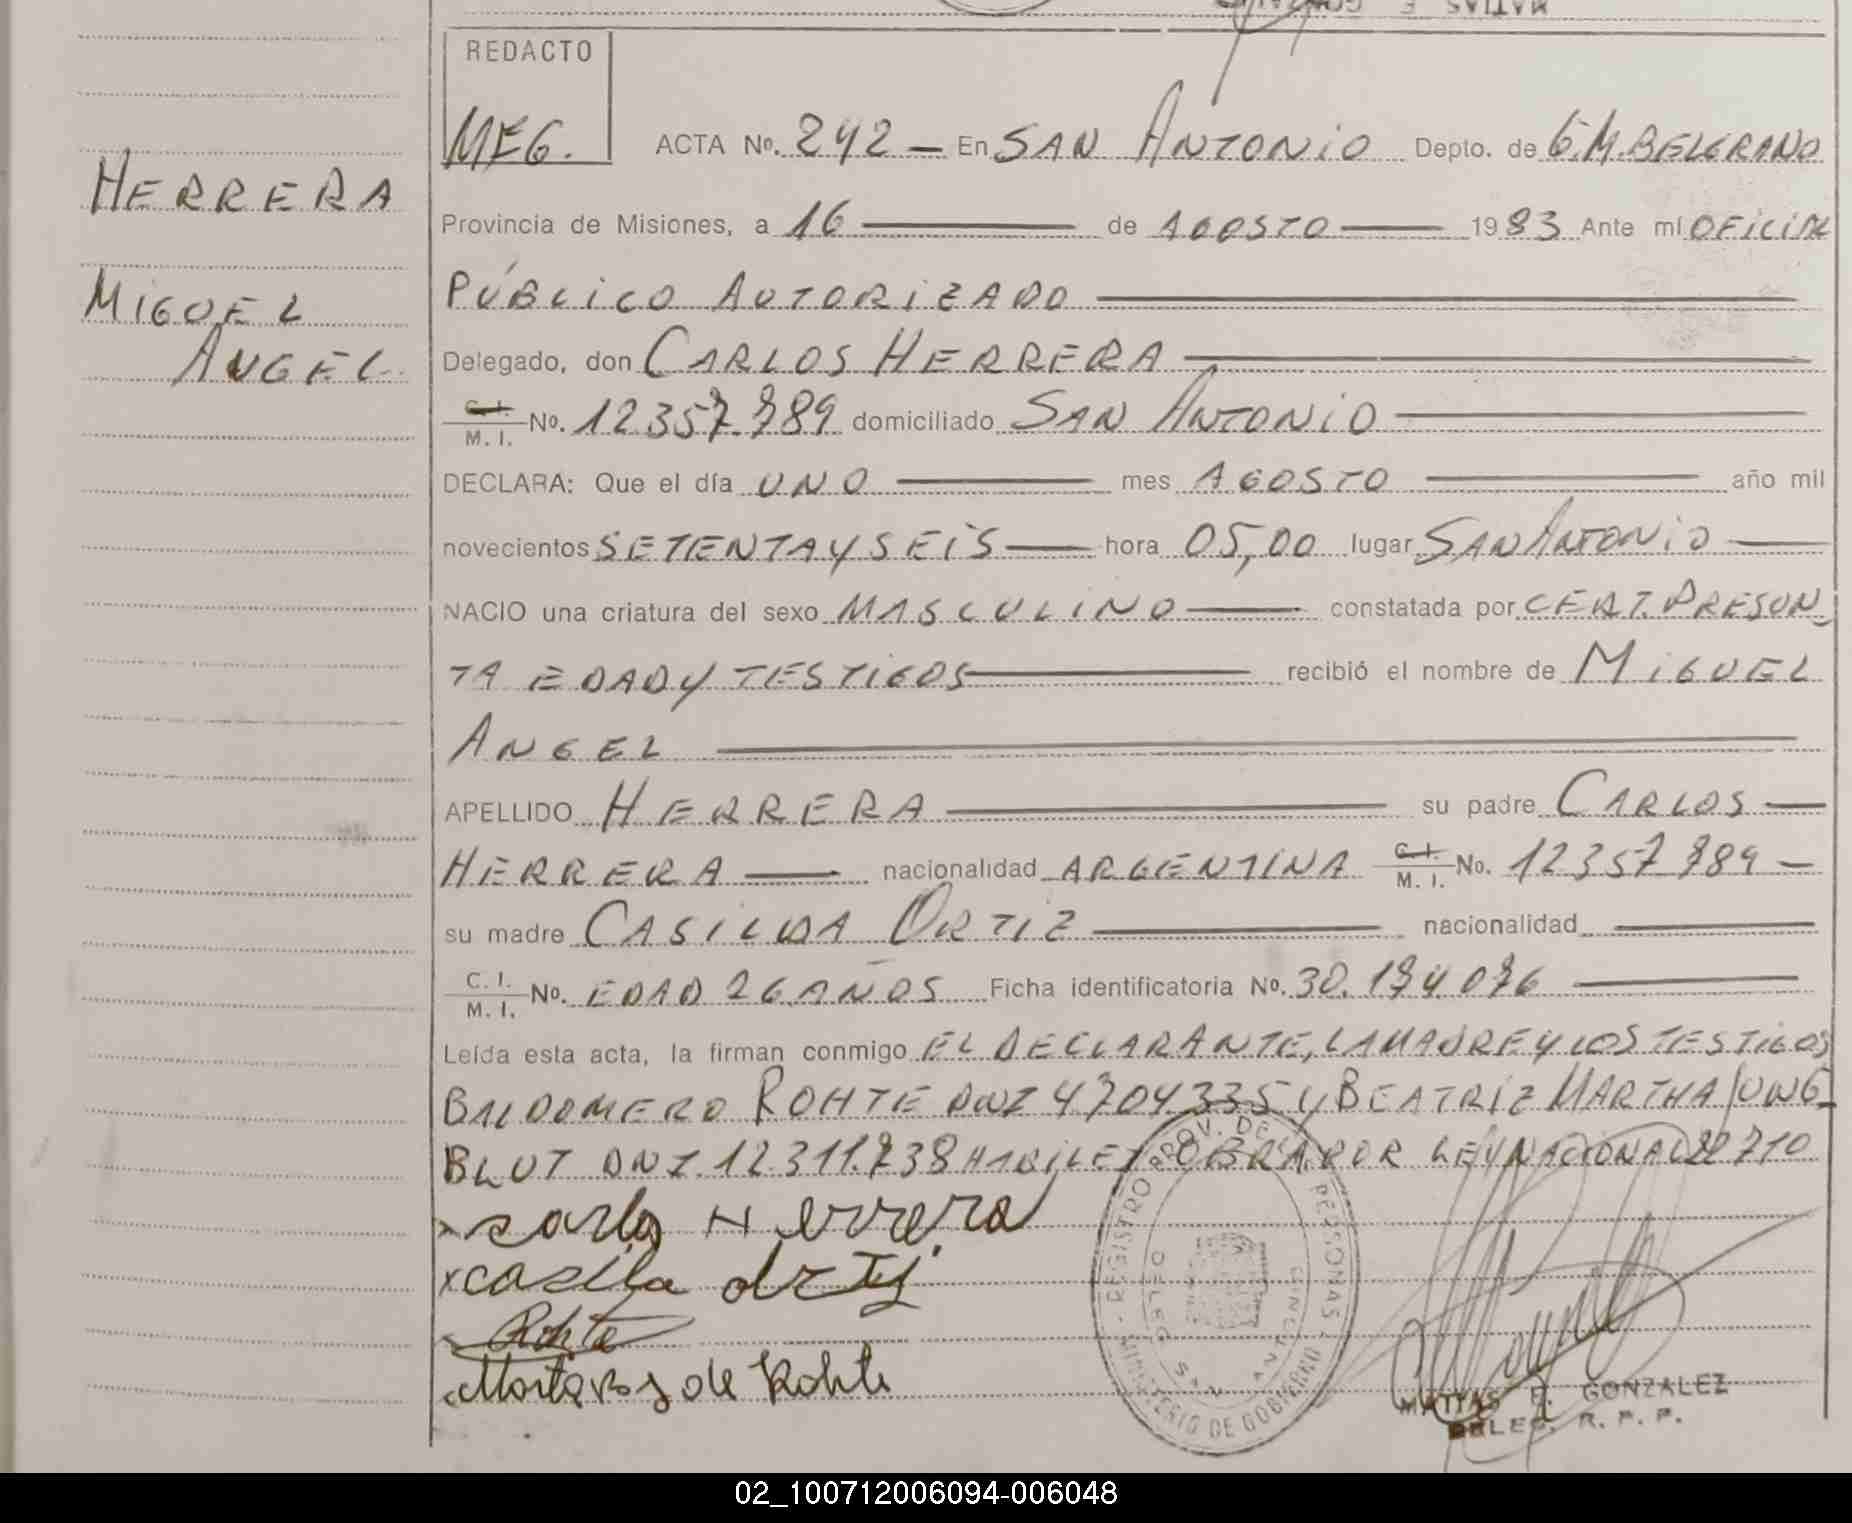 MATIAS E. GONZALEZ
REDACTO
MEG.
ACTA Nº. 242 — En SAN ANTONIO Depto. de G.M.BELGRANO
HERRERA
Provincia de Misiones, a 16 — de AGOSTO — 1983 Ante mí OFICIAL
MIGUEL
PÚBLICO AUTORIZADO —
ANGEL
Delegado, don CARLOS HERRERA —
C. I. / M. I. Nº. 12357.789 domiciliado SAN ANTONIO —
DECLARA: Que el día UNO — mes AGOSTO — año mil
novecientos SETENTA Y SEIS — hora 05,00 lugar SAN ANTONIO —
NACIO una criatura del sexo MASCULINO — constatada por CERT. PRESUN_
TA EDAD Y TESTIGOS — recibió el nombre de MIGUEL
ANGEL —
APELLIDO HERRERA — su padre CARLOS —
HERRERA — nacionalidad ARGENTINA C. I. / M. I. Nº. 12357789 —
su madre CASILDA ORTIZ — nacionalidad —
C. I. / M. I. Nº. EDAD 26 AÑOS Ficha identificatoria Nº. 30.174.076 —
Leída esta acta, la firman conmigo EL DECLARANTE, LA MADRE Y LOS TESTIGOS
BALDOMERO ROHTE DNI 4704335 Y BEATRIZ MARTHA JUNG_
BLUT DNI. 12.311.738 HABILES OBRA POR LEY NACIONAL 22710
x carlos Herrera
x casilda ortiz
Rohte
de Rohte
REGISTRO PROV. DE LAS PERSONAS - MINISTERIO DE GOBIERNO -
DELEG. SAN ANTONIO
MATIAS E. GONZALEZ
DELEG. R. P. P.
02_100712006094-006048